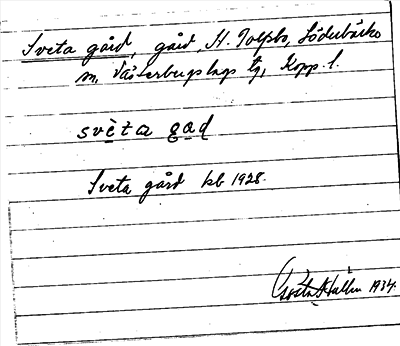 Sveta gård, gård, H. Tolfsbo, Söderbärke
sn, Västerbergslags tg, Kopp. l.
svèta gad
Sveta gård kb 1928.
Gösta Hallin 1934.